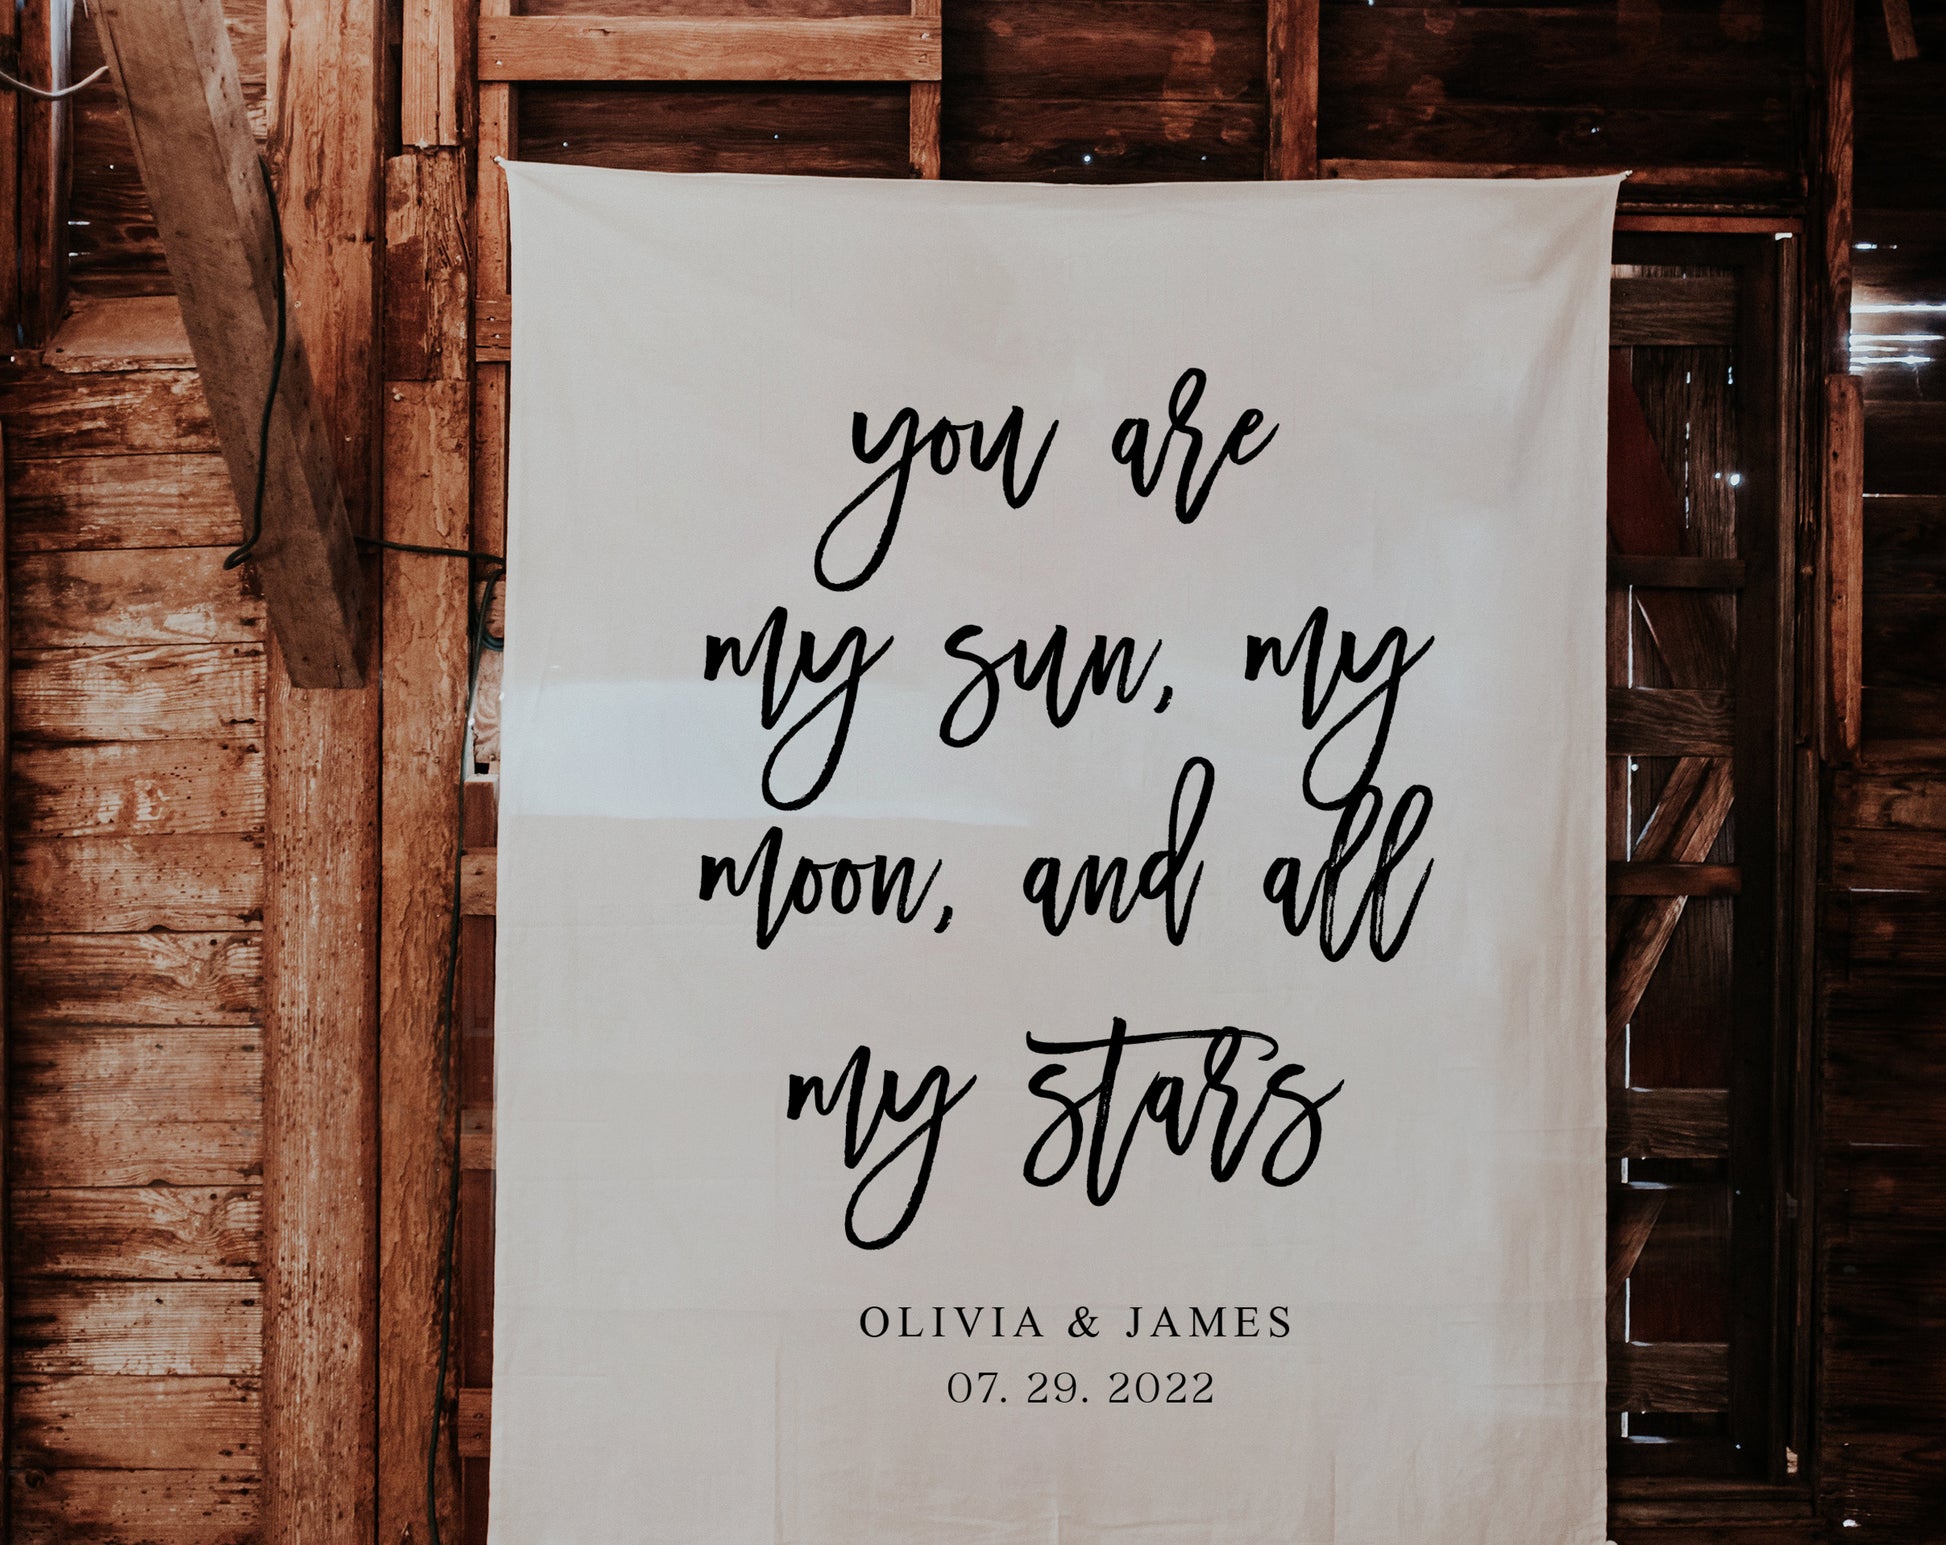 you are
my sun, my
moon, and all
my stars
OLIVIA & JAMES
07. 29. 2022